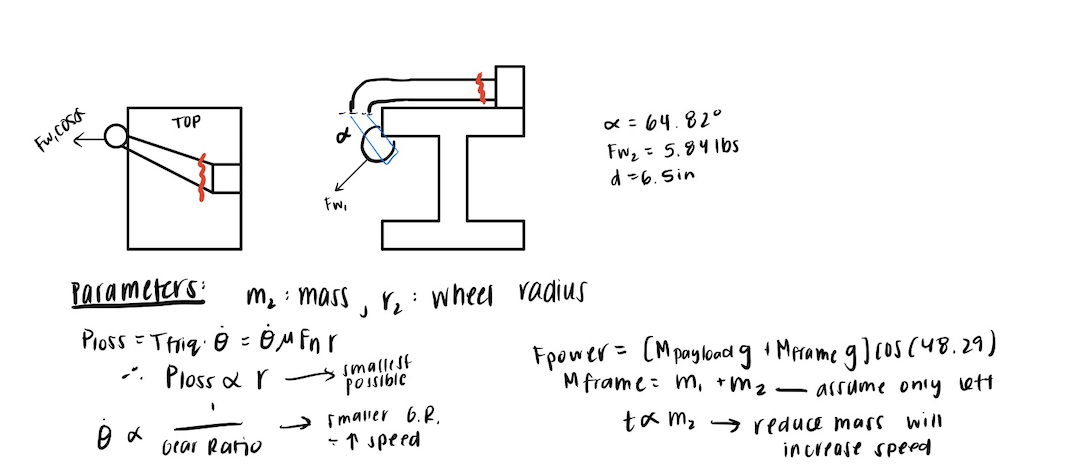 TOP
Fw,cosα
α
Fw₁
α = 64.82°
Fw₂ = 5.84 lbs
d = 6.5in
Parameters: m₂ : mass, r₂ : wheel radius
Ploss = Tfriq. θ̇ = θ̇ μ Fn r
∴ Ploss ∝ r → smallest possible
θ̇ ∝ 1 / Gear Ratio → smaller G.R. = ↑ speed
Fpower = [Mpayload g + Mframe g] cos(48.29)
Mframe = m₁ + m₂ — assume only
t ∝ m₂ → reduce mass will
increase speed